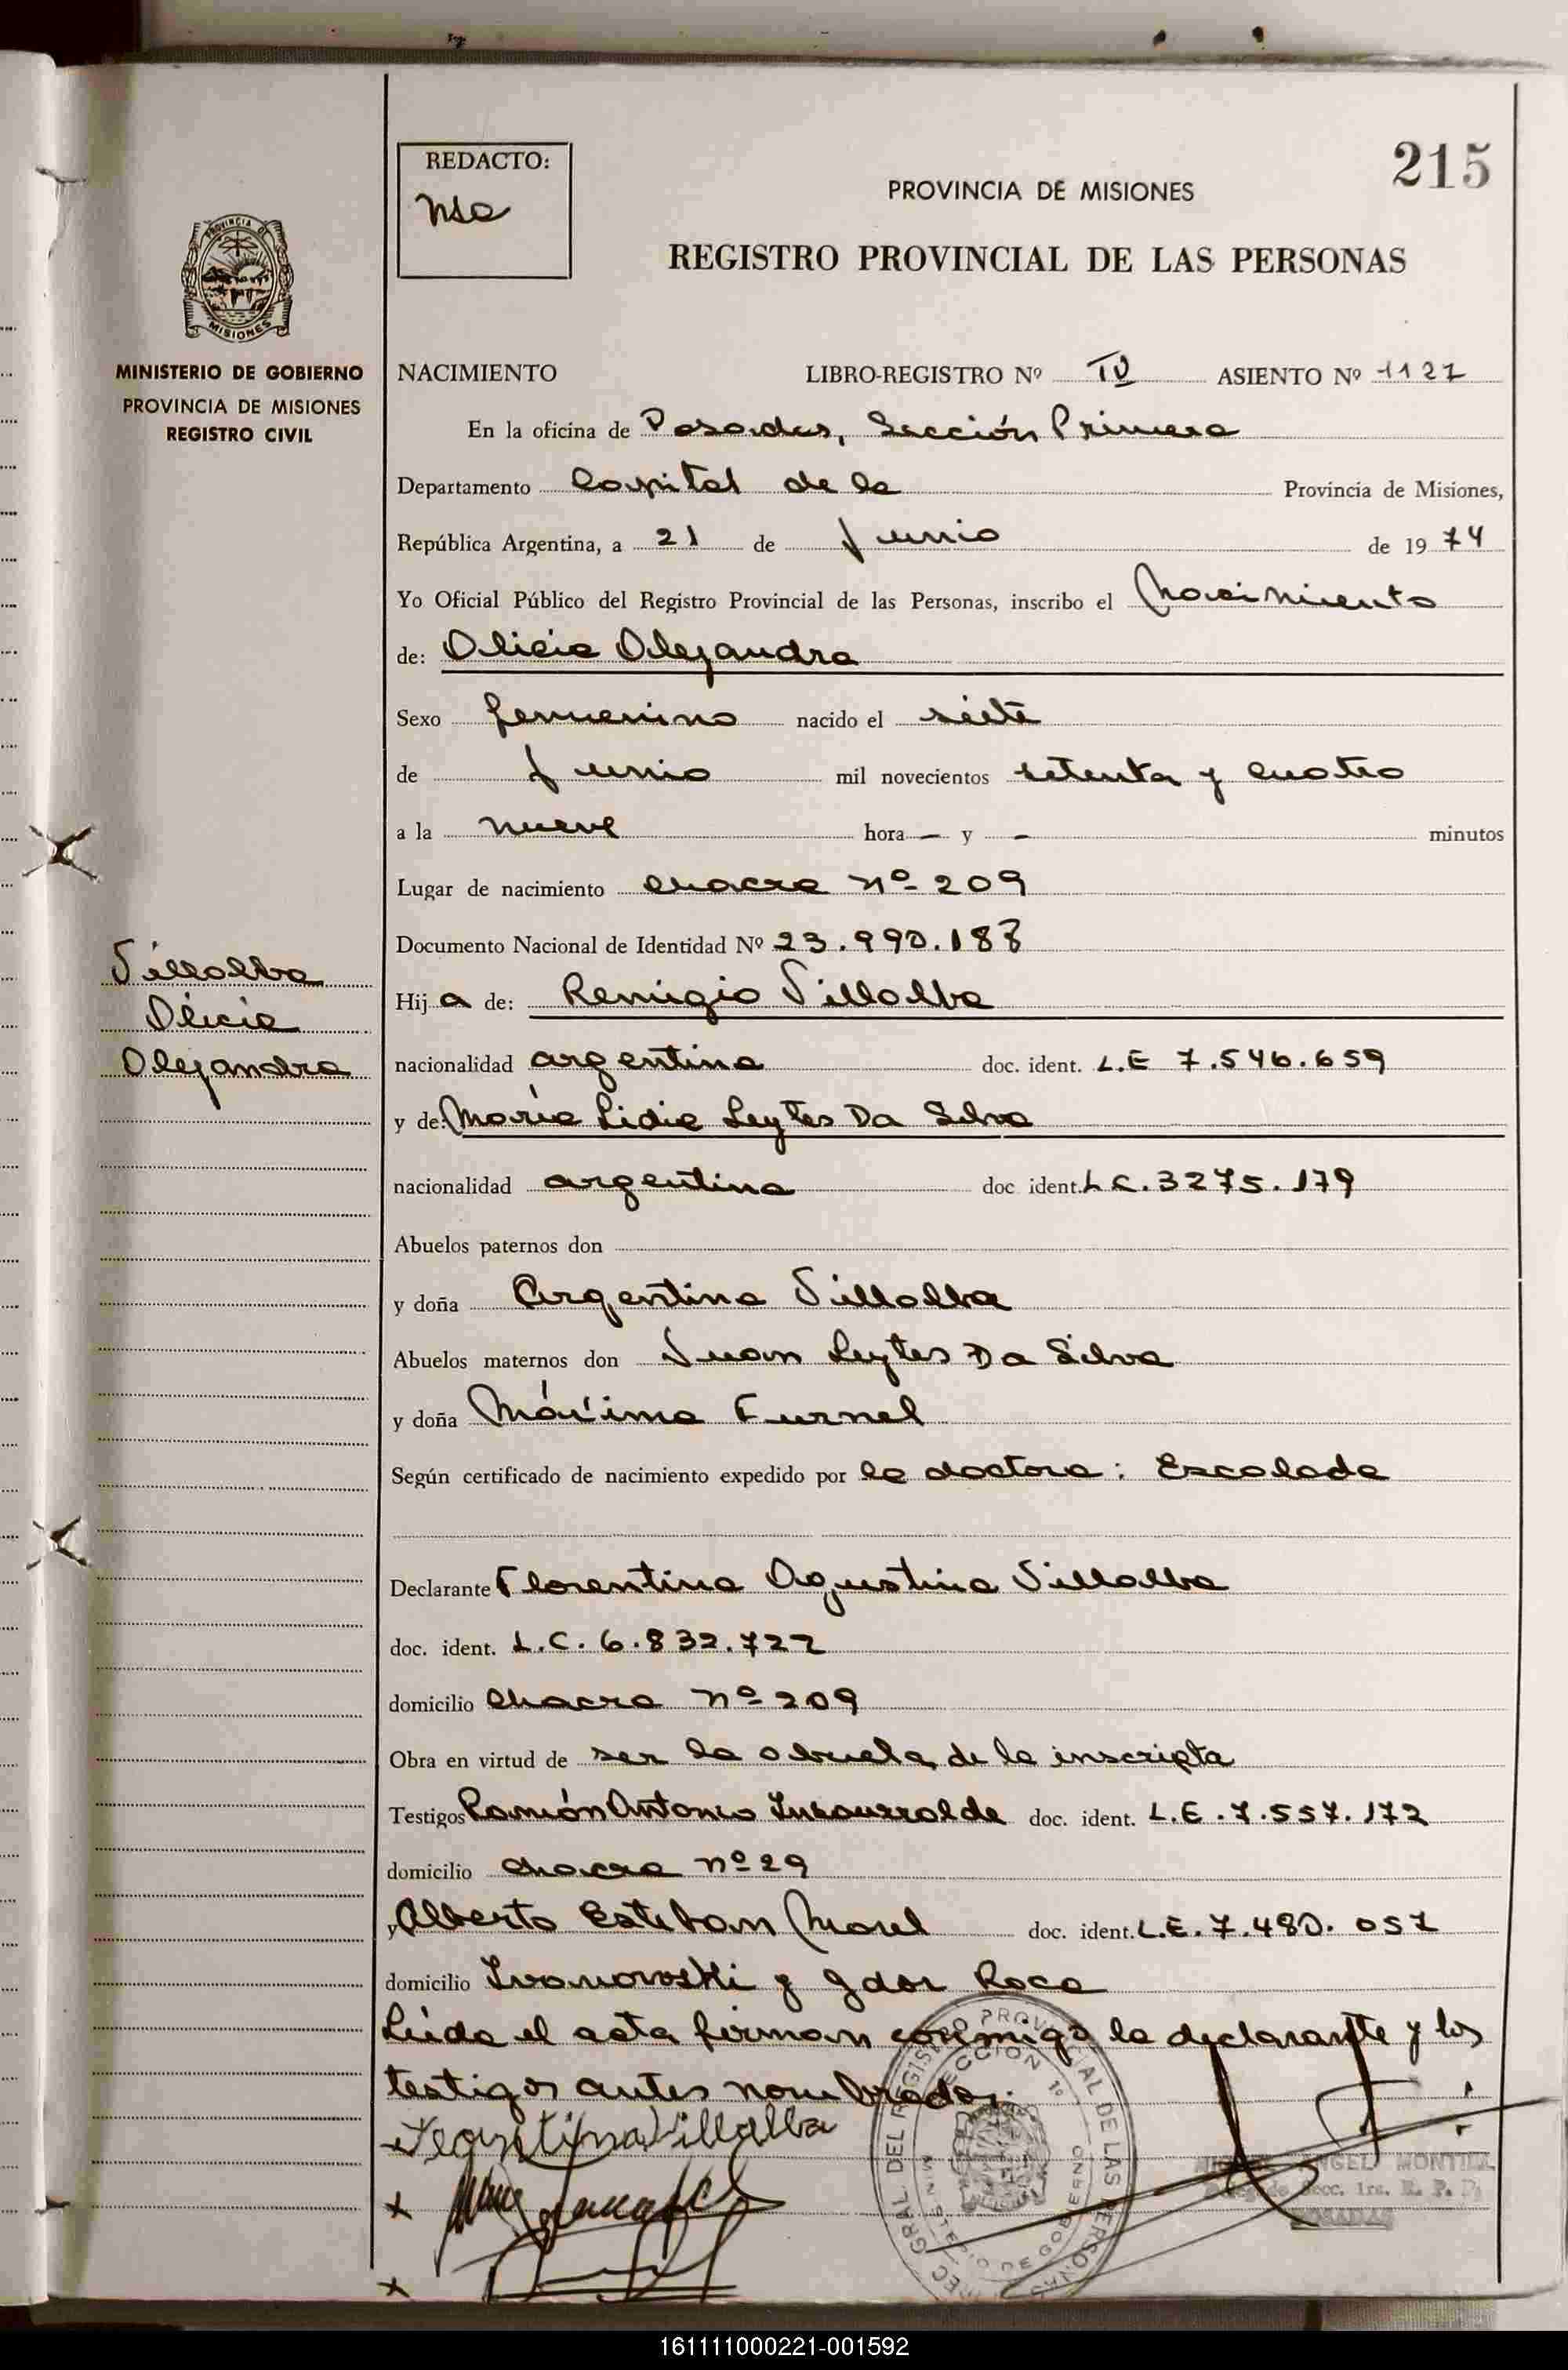 215
REDACTO:
PROVINCIA DE MISIONES
REGISTRO PROVINCIAL DE LAS PERSONAS
PROVINCIA DE
MISIONES
MINISTERIO DE GOBIERNO
PROVINCIA DE MISIONES
REGISTRO CIVIL
NACIMIENTO LIBRO-REGISTRO Nº IV ASIENTO Nº 1127
En la oficina de Posadas, Sección Primera
Departamento Capital de la Provincia de Misiones,
República Argentina, a 21 de Junio de 1974
Yo Oficial Público del Registro Provincial de las Personas, inscribo el Nacimiento
de: Alicia Alejandra
Sexo femenino nacido el siete
de Junio mil novecientos setenta y cuatro
a la nueve hora — y - minutos
Lugar de nacimiento chacra nº 209
Documento Nacional de Identidad Nº 23.990.183
Villalba
Alicia
Alejandra
Hija de: Remigio Villalba
nacionalidad argentina doc. ident. L.E 7.546.659
y de: María Lidia Leytes Da Silva
nacionalidad argentina doc ident. L C. 3275.179
Abuelos paternos don
y doña Argentina Villalba
Abuelos maternos don Juan Leytes Da Silva
y doña Máxima Furnel
Según certificado de nacimiento expedido por la doctora: Escalada
Declarante Florentina Agustina Villalba
doc. ident. L.C. 6.832.722
domicilio Chacra nº 209
Obra en virtud de ser la abuela de la inscripta
Testigos Ramón Antonio Insaurralde doc. ident. L.E. 7.557.172
domicilio chacra nº 29
y Alberto Esteban Morel doc. ident. L.E. 7.480.057
domicilio Ivanowski y gdor Roca
Leída el acta firman conmigo la declarante y los
testigos antes nombrados.
Villalba
ANGEL MONTIEL
Secc. 1ra. R. P. P.
POSADAS
GRAL. DEL REGISTRO PROVINCIAL DE LAS PERSONAS
SECCION 1º
MINISTERIO DE GOBIERNO
161111000221-001592